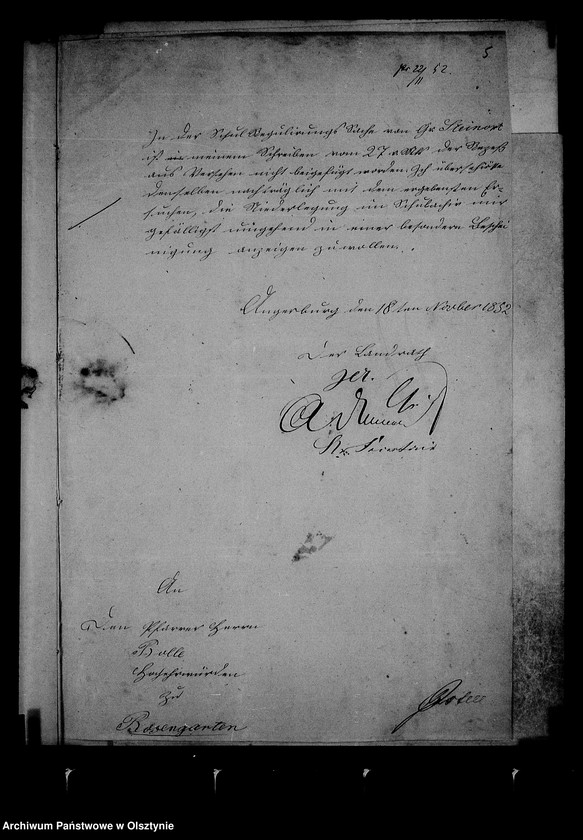 5
pr 22/11 52.
In der Schul Regulirungs Sache von Gr Steinort
ist meinem Schreiben vom 27 v. Mts der Rezeß
aus Versehen nicht beigefügt worden. Ich überschicke
denselben nachträglich mit dem ergebensten Er-
suchen, die Niederlegung im Schularchiv mir
gefälligst umgehend in einer besondern Beschei
nigung anzeigen zu wollen.
Angerburg den 18ten Novber 1852
Der Landrath
gez.
An
Den Pfarrer Herrn
Bolle
Hochehrwürden
zu
Rosengarten
Archiwum Państwowe w Olsztynie